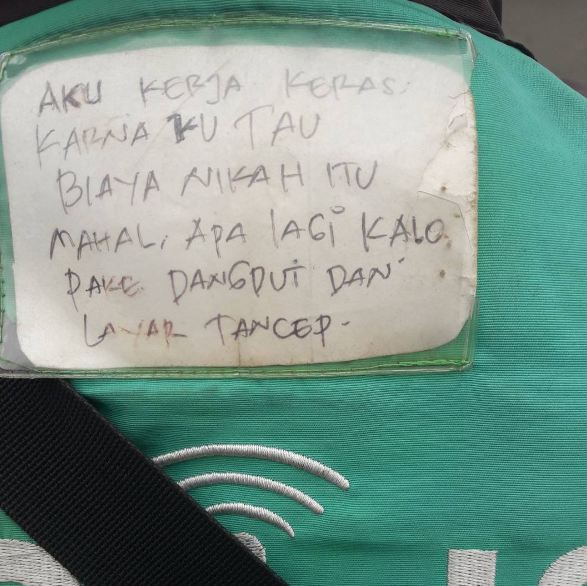 AKU KERJA KERAS
KARNA KU TAU
BIAYA NIKAH ITU
MAHAL, APA LAGI KALO
PAKE DANGDUT DAN
LAYAR TANCEP.